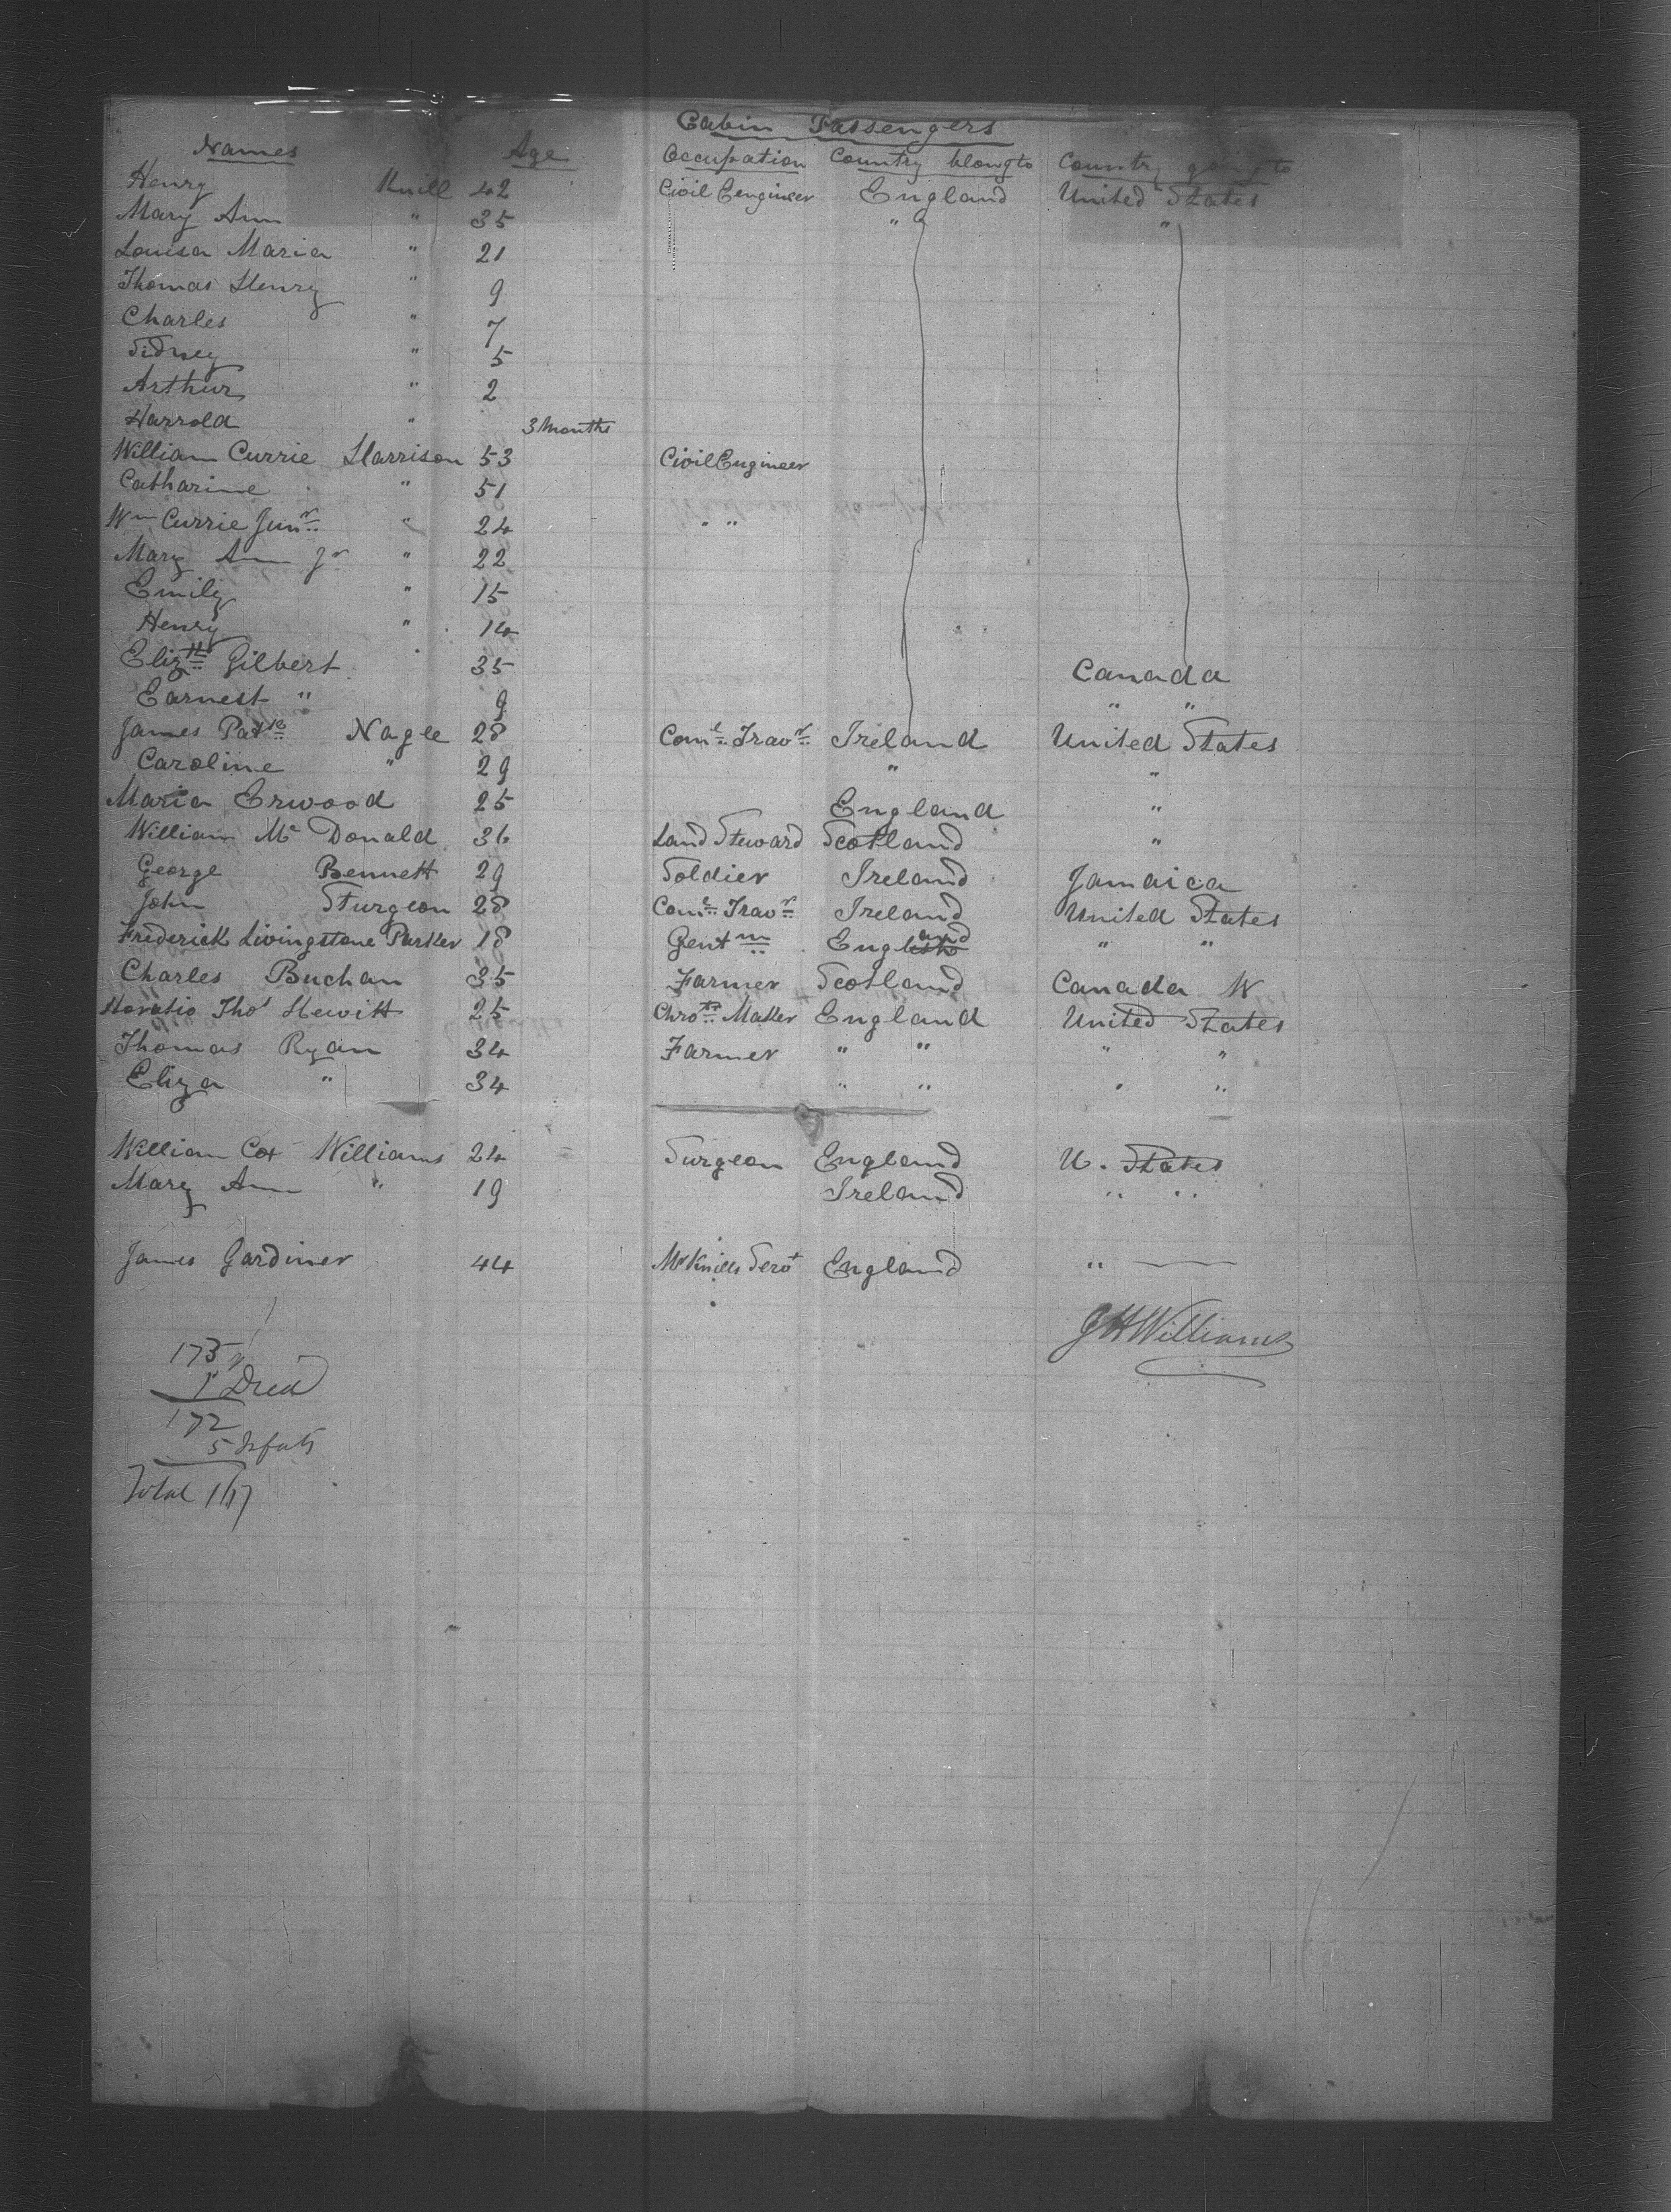 Cabin Passengers
Names Age Occupation Country blong to Country going to
Henry Knill 42 Civil Eengineer England United States
Mary Ann " 35 " "
Louisa Maria " 21
Thomas Henry " 9
Charles " 7
Sidney " 5
Arthur " 2
Harrold " 3 Months
William Currie Harrison 53 Civil Engineer
Catharine " 51
Wm Currie Junr " 24 " "
Mary Ann Jr " 22
Emily " 15
Henry " 14
Elizth Gilbert 35 Canada
Earnest " 9 " "
James Patk Nagle 28 Coml Travr Ireland United States
Caroline " 29 " "
Maria Erwood 25 England "
William Mc Donald 36 Land Steward Scotland "
George Bennett 29 Soldier Ireland Jamaica
John Sturgeon 28 Coml Travr Ireland United States
Frederick Livingstone Parker 18 Gentm England " "
Charles Buchan 35 Farmer Scotland Canada W
Horatio Thos Hewitt 25 Chrotr Maker England United States
Thomas Ryan 34 Farmer " " " "
Eliza " 34 " " " "
William Cox Williams 24 Surgeon England U. States
Mary Ann " 19 Ireland " "
James Gardiner 44 Mr Knills Servt England "
J H Williams
173
1 Died
172
5 Infats
Total 167